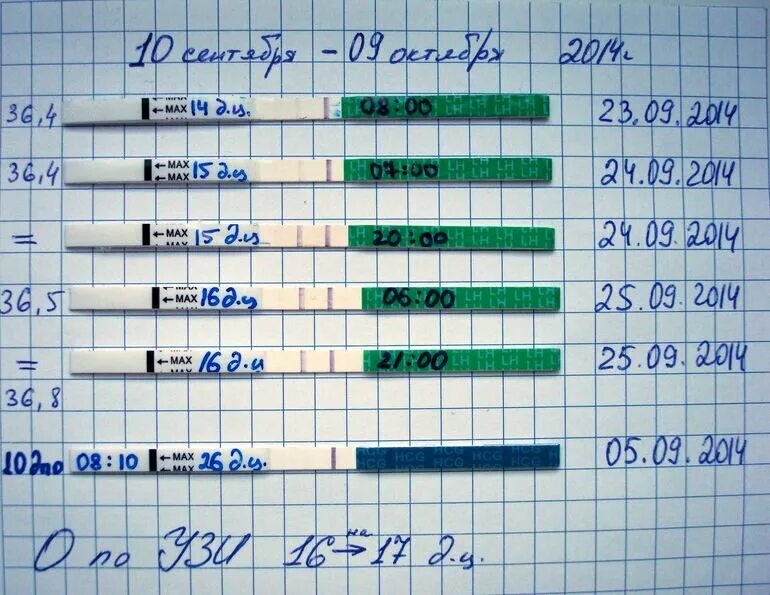 10 сентября - 09 октября 2014г
36,4 ←MAX 14 д.ц. 08:00 23.09.2014
36,4 ←MAX ←MAX 15 д.ц 07:00 LH LH LH LH 24.09.2014
= ←MAX ←MAX 15 д.ц 20:00 LH LH LH LH 24.09.2014
36,5 ←MAX 16 д.ц 06:00 LH LH LH LH 25.09.2014
= ←MAX 16 д.ц 21:00 LH LH LH LH 25.09.2014
36,8
10 дпо 08:10 ←MAX ←MAX 26 д.ц. HCG HCG HCG HCG HCG 05.09.2014
О по УЗИ 16 на→ 17 д.ц.